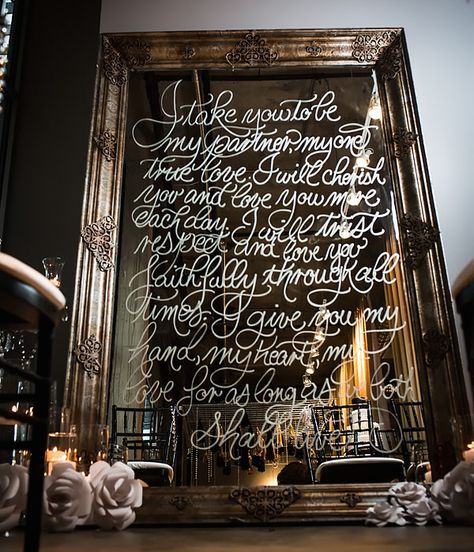 I take you to be
my partner, my one
true love. I will cherish
you and love you more
each day. I will trust
respect and love you
faithfully, through all
times. I give you my
hand, my heart, my
love for as long as we both
shall live